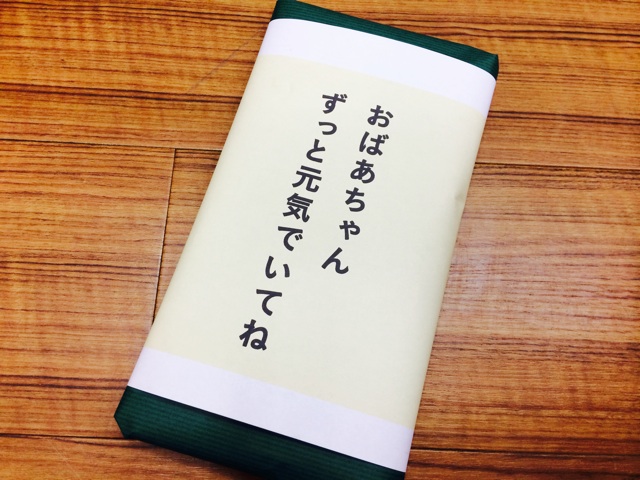 おばあちゃん
ずっと元気でいてね